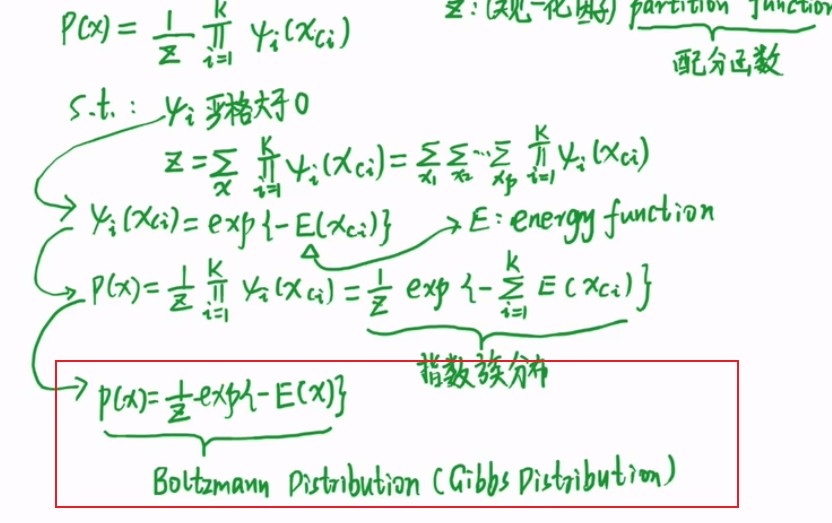 P(x) = 1/Z ∏_{i=1}^{K} ψ_i(x_{Ci})
Z: (归一化因子) partition function
配分函数
s.t.: ψ_i 严格大于0
Z = ∑_x ∏_{i=1}^{K} ψ_i(x_{Ci}) = ∑_{x_1} ∑_{x_2} ⋯ ∑_{x_p} ∏_{i=1}^{K} ψ_i(x_{Ci})
ψ_i(x_{Ci}) = exp{-E(x_{Ci})} → E: energy function
P(x) = 1/Z ∏_{i=1}^{K} ψ_i(x_{Ci}) = 1/Z exp{-∑_{i=1}^{K} E(x_{Ci})}
指数族分布
P(x) = 1/Z exp{-E(x)}
Boltzmann Distribution (Gibbs Distribution)